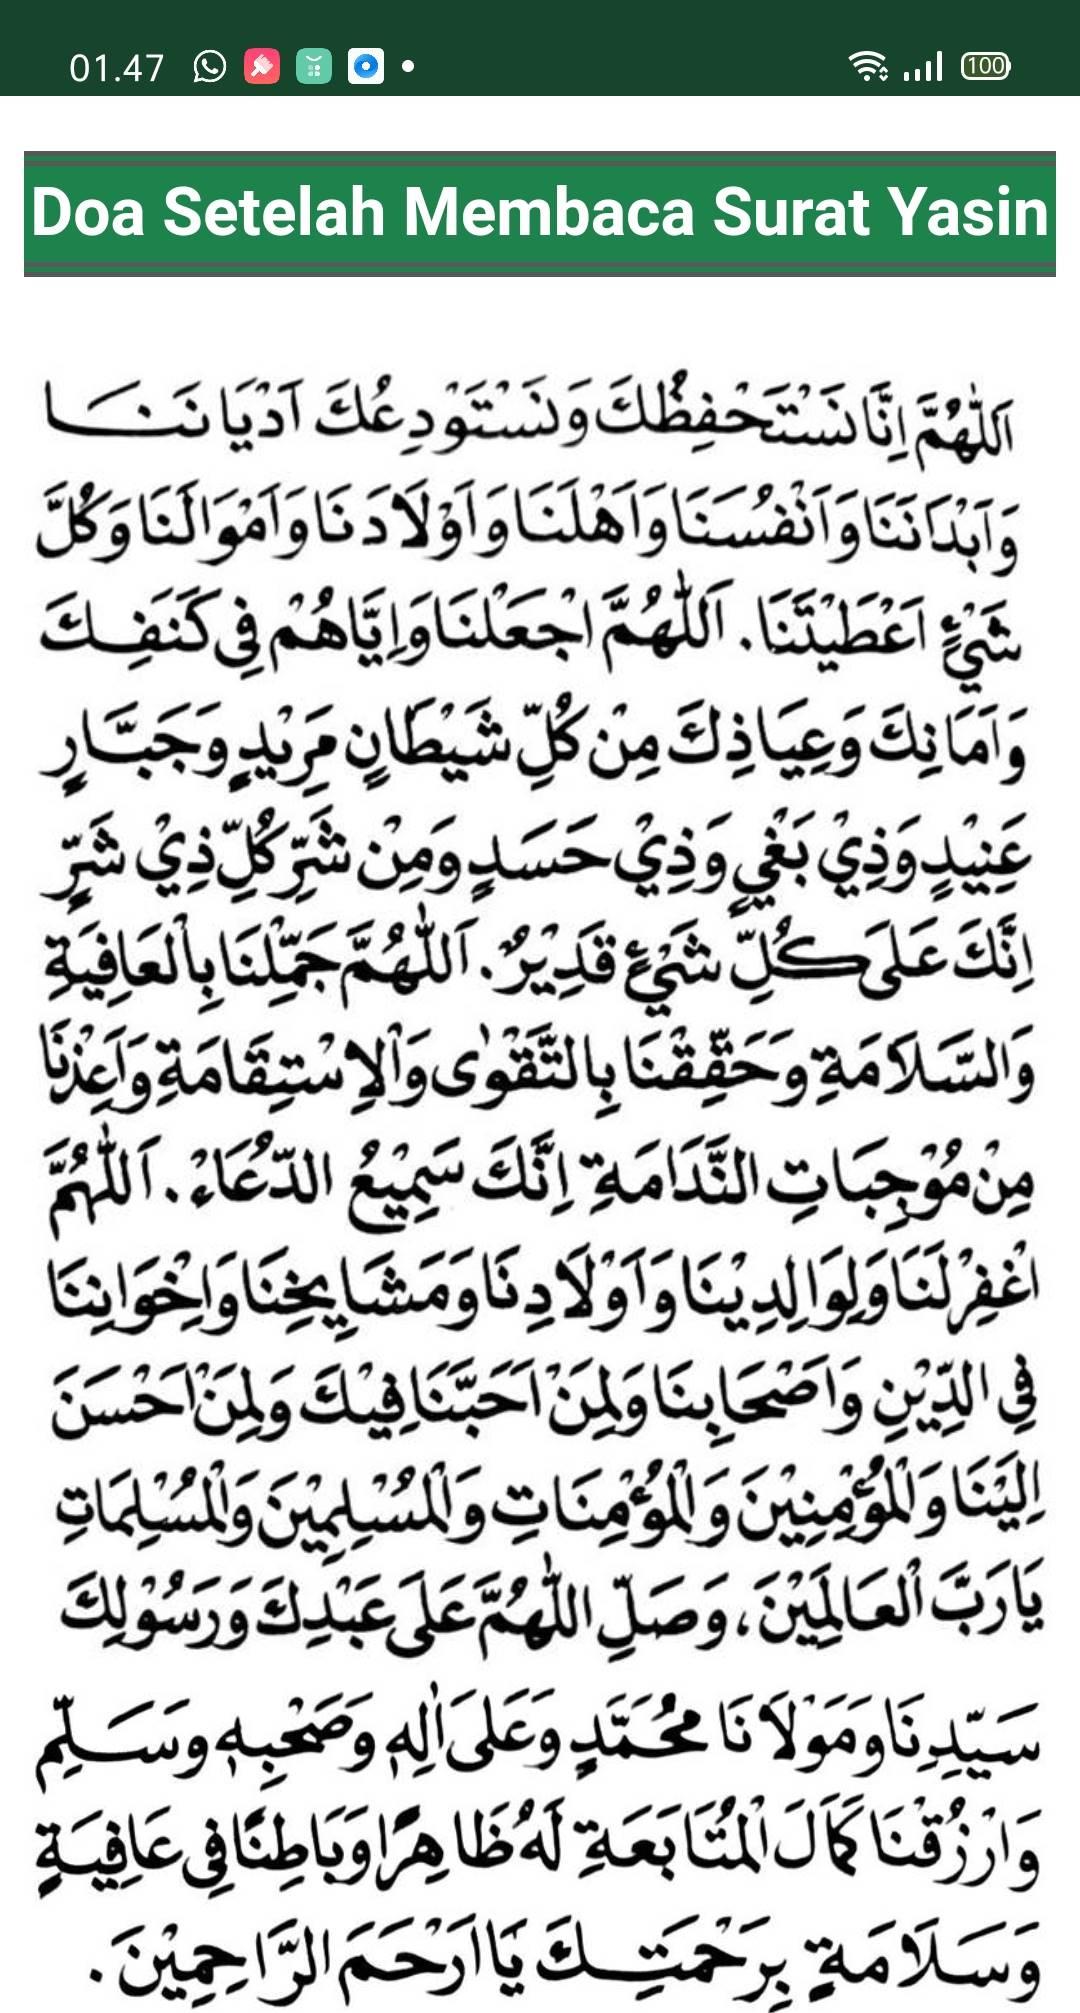 01.47
100
Doa Setelah Membaca Surat Yasin
اَللّٰهُمَّ اِنَّا نَسْتَحْفِظُكَ وَنَسْتَوْدِعُكَ اَدْيَانَنَا
وَاَبْدَانَنَا وَاَنْفُسَنَا وَاَهْلَنَا وَاَوْلَادَنَا وَاَمْوَالَنَا وَكُلَّ
شَيْءٍ اَعْطَيْتَنَا. اَللّٰهُمَّ اجْعَلْنَا وَاِيَّاهُمْ فِي كَنَفِكَ
وَاَمَانِكَ وَعِيَاذِكَ مِنْ كُلِّ شَيْطَانٍ مَرِيْدٍ وَجَبَّارٍ
عَنِيْدٍ وَذِيْ بَغْيٍ وَذِيْ حَسَدٍ وَمِنْ شَرِّ كُلِّ ذِيْ شَرٍّ
اِنَّكَ عَلَى كُلِّ شَيْءٍ قَدِيْرٌ. اَللّٰهُمَّ جَمِّلْنَا بِالْعَافِيَةِ
وَالسَّلَامَةِ وَحَقِّقْنَا بِالتَّقْوٰى وَالْاِسْتِقَامَةِ وَاَعِذْنَا
مِنْ مُوْجِبَاتِ النَّدَامَةِ اِنَّكَ سَمِيْعُ الدُّعَاءْ. اَللّٰهُمَّ
اغْفِرْ لَنَا وَلِوَالِدِيْنَا وَاَوْلَادِنَا وَمَشَايِخِنَا وَاِخْوَانِنَا
فِي الدِّيْنِ وَاَصْحَابِنَا وَلِمَنْ اَحَبَّنَا فِيْكَ وَلِمَنْ اَحْسَنَ
اِلَيْنَا وَالْمُؤْمِنِيْنَ وَالْمُؤْمِنَاتِ وَالْمُسْلِمِيْنَ وَالْمُسْلِمَاتِ
يَارَبَّ الْعَالَمِيْنَ، وَصَلِّ اللّٰهُمَّ عَلَى عَبْدِكَ وَرَسُوْلِكَ
سَيِّدِنَا وَمَوْلَانَا مُحَمَّدٍ وَعَلَى اٰلِهِ وَصَحْبِهِ وَسَلِّمْ
وَارْزُقْنَا كَمَالَ الْمُتَابَعَةِ لَهُ ظَاهِرًا وَبَاطِنًا فِي عَافِيَةٍ
وَسَلَامَةٍ بِرَحْمَتِكَ يَااَرْحَمَ الرَّاحِمِيْنَ.